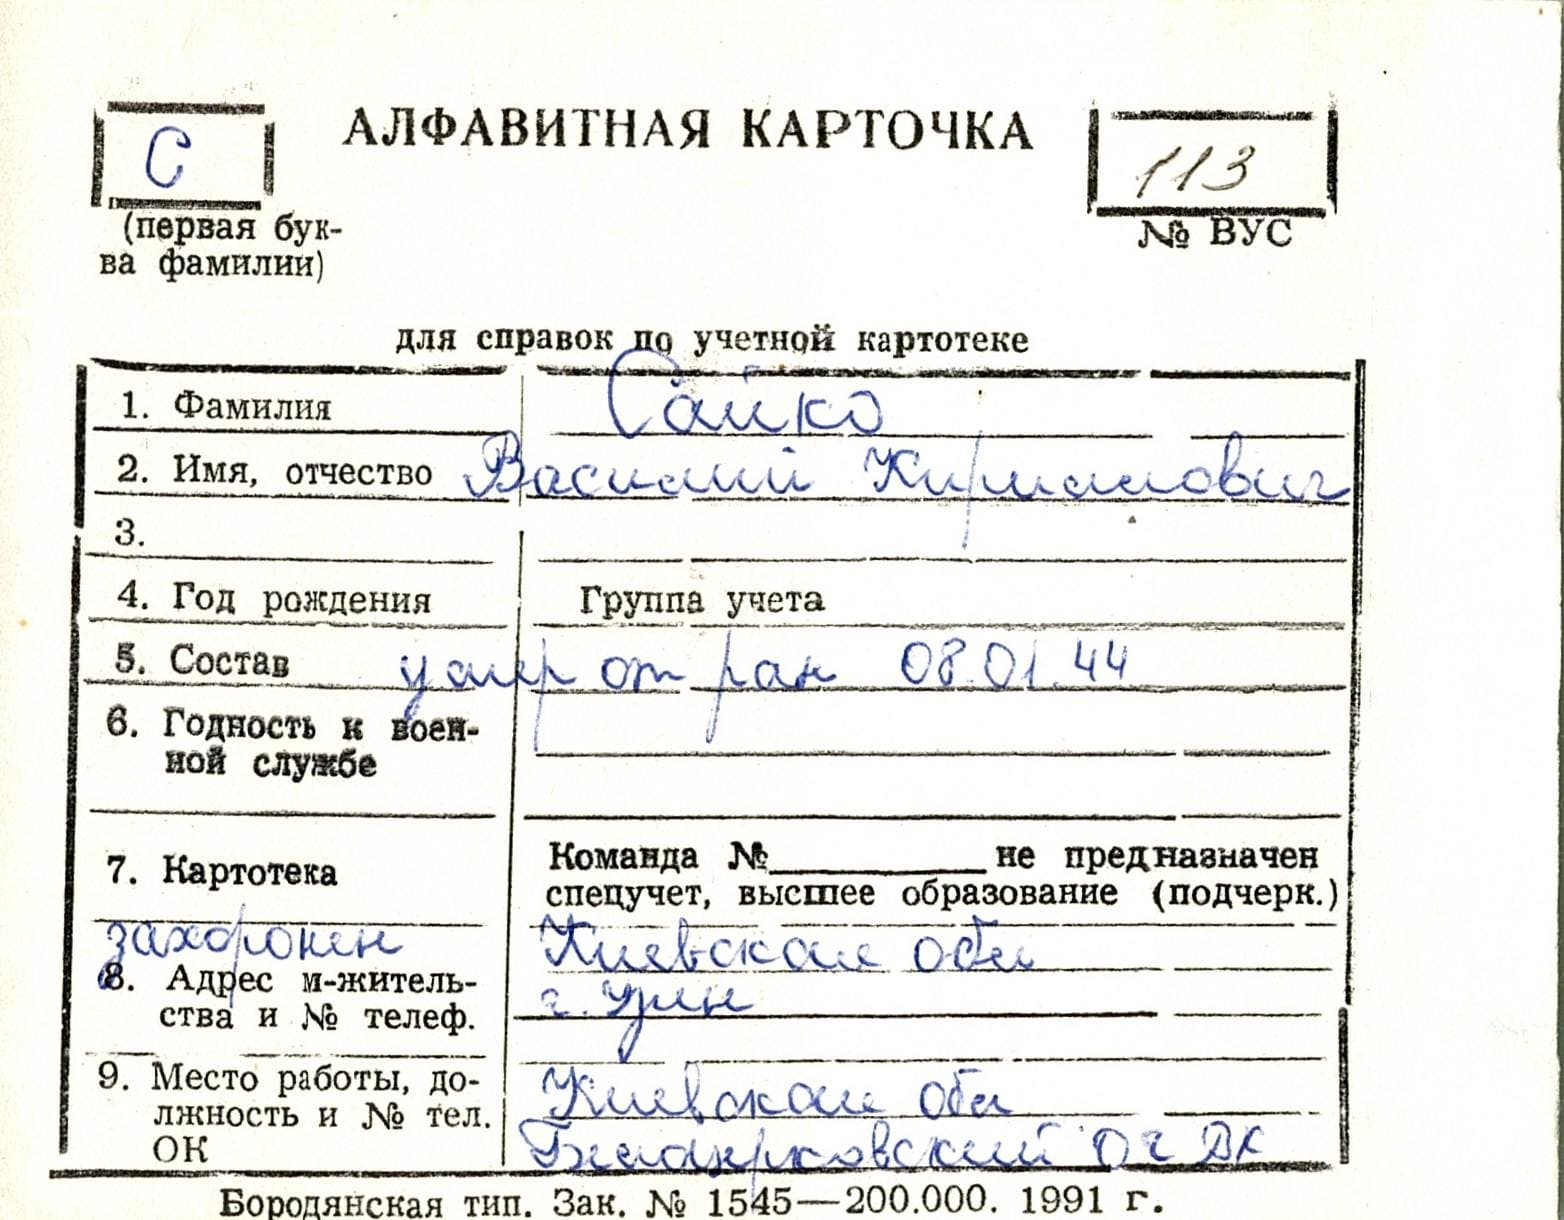 С
АЛФАВИТНАЯ КАРТОЧКА
113
(первая бук-
ва фамилии)
№ ВУС
для справок по учетной картотеке
1. Фамилия Сайко
2. Имя, отчество Василий
3.
4. Год рождения Группа учета
5. Состав умер от ран 08.01.44
6. Годность к воен-
ной службе
7. Картотека
Команда №__________не предназначен
спецучет, высшее образование (подчерк.)
захоронен Киевская обл
8. Адрес м-житель-
ства и № телеф.
г. Узин
9. Место работы, до-
лжность и № тел.
ОК
Киевская обл
Бородянская тип. Зак. № 1545—200.000. 1991 г.